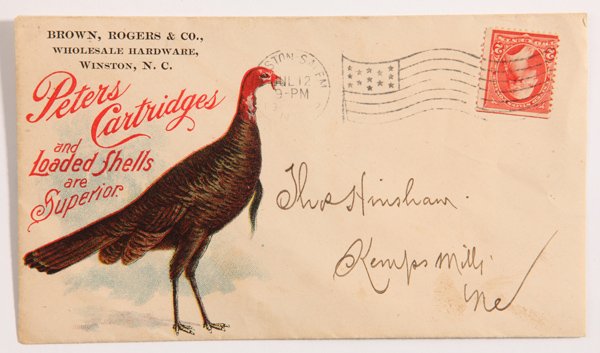 BROWN, ROGERS & CO.,
WHOLESALE HARDWARE,
WINSTON, N. C.
Peters
Cartridges
and
Loaded Shells
are
Superior.
STON-SALEM
JUL 12
9-PM
2 2
Thos Hinshaw.
Kemps Mills
NC